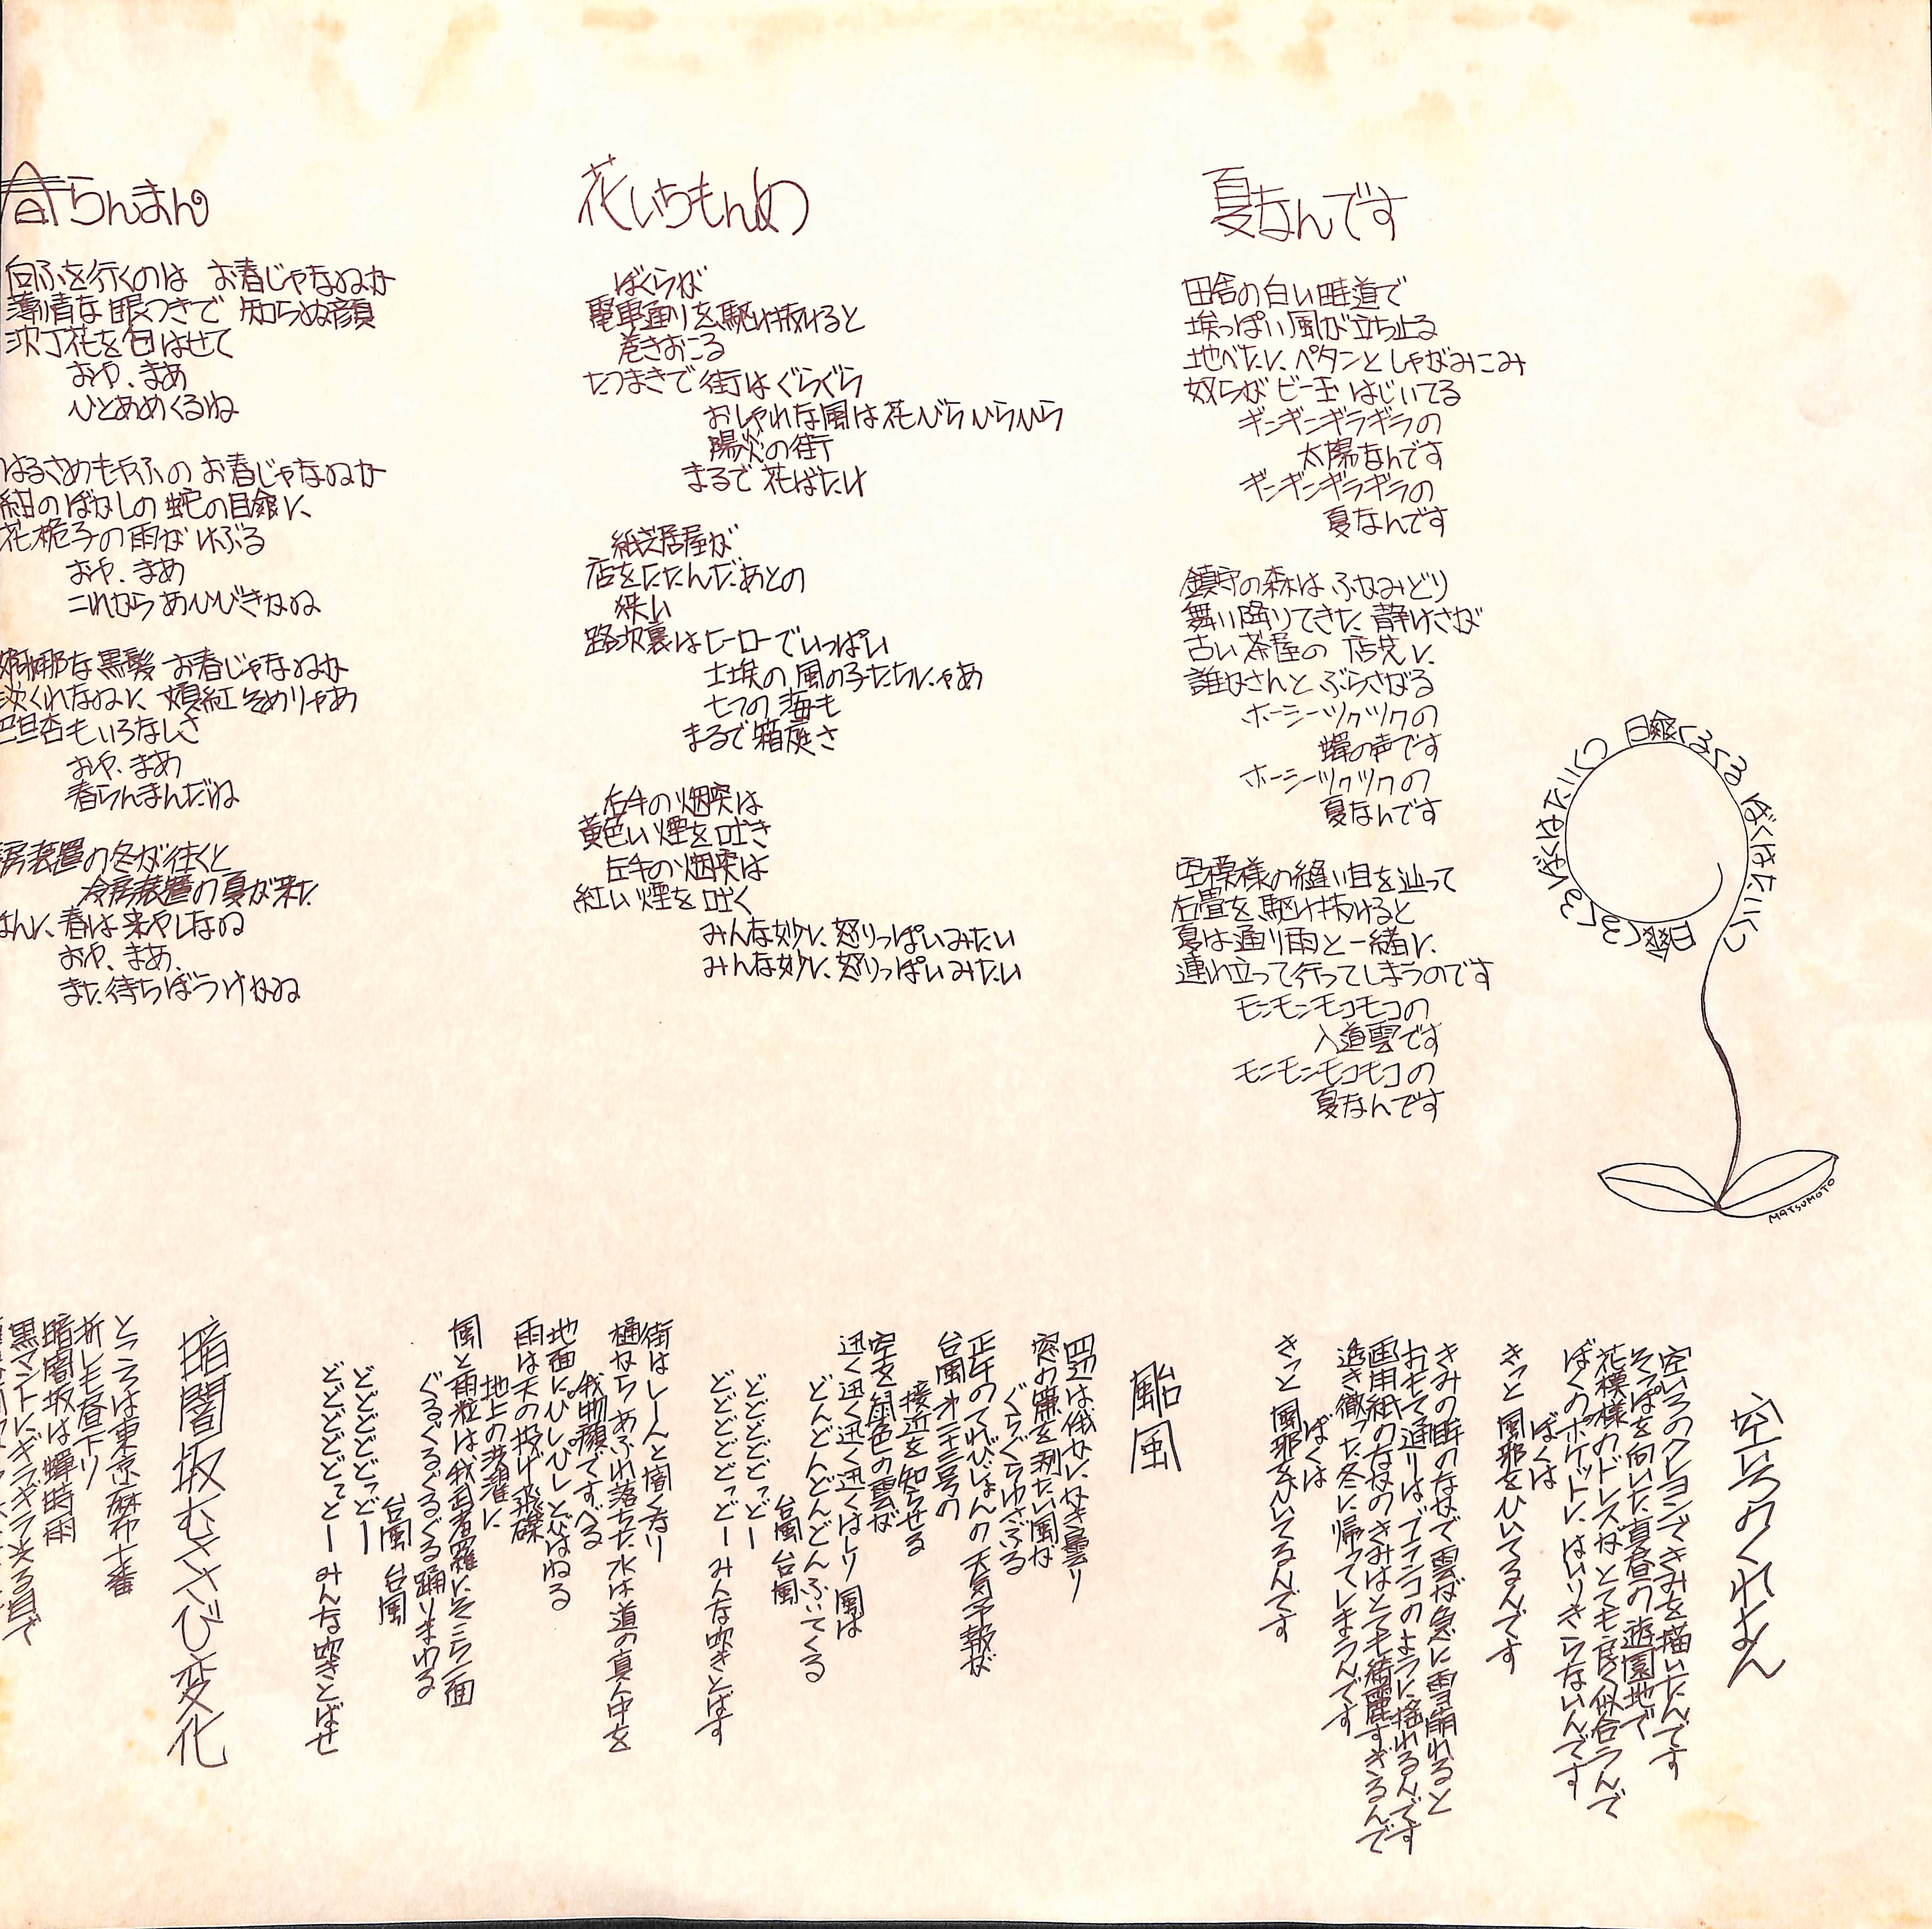 春らんまん
向ふを行くのは お春じゃなゐか
薄情な眼つきで 知らぬ顔
沈丁花を匂はせて
おや、まあ
ひとあめくるね
はるさめもやふの お春じゃなゐか
紺のぼかしの 蛇の目傘に
花梔子の雨がけぶる
おや、まあ
これから あひびきかゐ
婀娜な黒髪 お春じゃなゐか
淡くれなゐに 頬紅そめりゃあ
巴旦杏もいろなしさ
おや、まあ
春らんまんだね
房装置の冬が往くと
冷房装置の夏が来た
ほんに春は来やしなゐ
おや、まあ、
また待ちぼうけかゐ
花いちもんめ
ぼくらが
電車通りを駆け抜けると
巻きおこる
たつまきで街はぐらぐら
おしゃれな風は花びらひらひら
陽炎の街
まるで花ばたけ
紙芝居屋が
店をたたんだあとの
狭い
路次裏はヒーローでいっぱい
土埃の風の子たちにゃあ
七つの海も
まるで箱庭さ
右手の烟突は
黄色い煙を吐き
左手の烟突は
紅い煙を吐く
みんな妙に怒りっぽいみたい
みんな妙に怒りっぽいみたい
夏なんです
田舎の白い畦道で
埃っぽい風が立ち止る
地べたにペタンとしゃがみこみ
奴らがビー玉はじいてる
ギンギンギラギラの
太陽なんです
ギンギンギラギラの
夏なんです
鎮守の森はふかみどり
舞い降りてきた静けさが
古い茶屋の店先に
誰かさんとぶらさがる
ホーシーツクツクの
蟬の声です
ホーシーツクツクの
夏なんです
空模様の縫い目を辿って
石畳を駆け抜けると
夏は通り雨と一緒に
連れ立って行ってしまうのです
モンモンモコモコの
入道雲です
モンモンモコモコの
夏なんです
日傘くるくる ぼくはたいくつ
日傘くるくる ぼくはたいくつ
MATSUMOTO
空いろのくれよん
空いろのクレヨンできみを描いたんです
そっぽを向いた真昼の遊園地で
花模様のドレスがとても良く似合うんで
ぼくのポケットにはいりきらないんです
ぼくは
きっと風邪をひいてるんです
きみの眸のなかで雲が急に雪崩れると
おもて通りはブランコのように揺れるんです
画用紙のなかのきみはとても綺麗すぎるんで
透き徹った冬に帰ってしまうんです
ぼくは
きっと風邪をひいてるんです
颱風
四辺は俄かにかき曇り
窓の簾を冽たい風が
ぐらぐらゆさぶる
正午のてれびじょんの天気予報が
台風第二十三号の
接近を知らせる
空を鼠色の雲が
迅く迅く迅く迅くはしり 風は
どんどんどんどんふいてくる
台風 台風
どどどどどっどー
どどどどどっどー みんな吹きとばす
街はしーんと闇くなり
樋からあふれ落ちた水は道の真ん中を
我物顔ですべる
地面にぴしぴしとびはねる
雨は天の投げ飛礫
地上の洗濯に
風と雨粒は我武者羅にそこら一面
ぐるぐるぐるぐるぐる踊りまわる
台風 台風
どどどどどっどー
どどどどどっどー みんな吹きとばせ
暗闇坂むささび変化
ところは東京麻布十番
折しも昼下り
暗闇坂は蟬時雨
黒マントにギラギラ光る目で